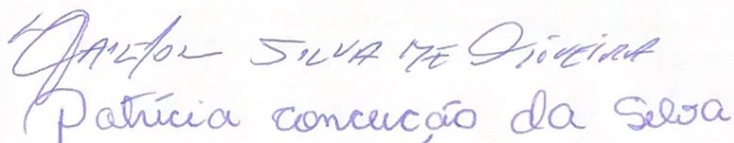 Jailton Silva de Oliveira
Patrícia concucção da Selva